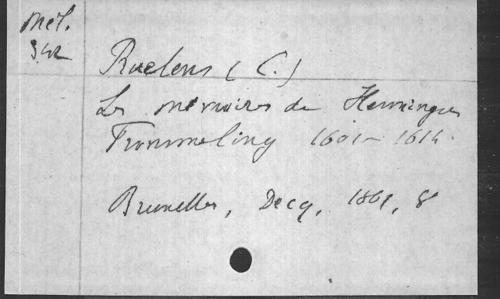 Mél.
342
Ruelens (C.)
Les mémoires de Henningus
Frommeling 1601-1614
Bruxelles, Decq, 1861, 8